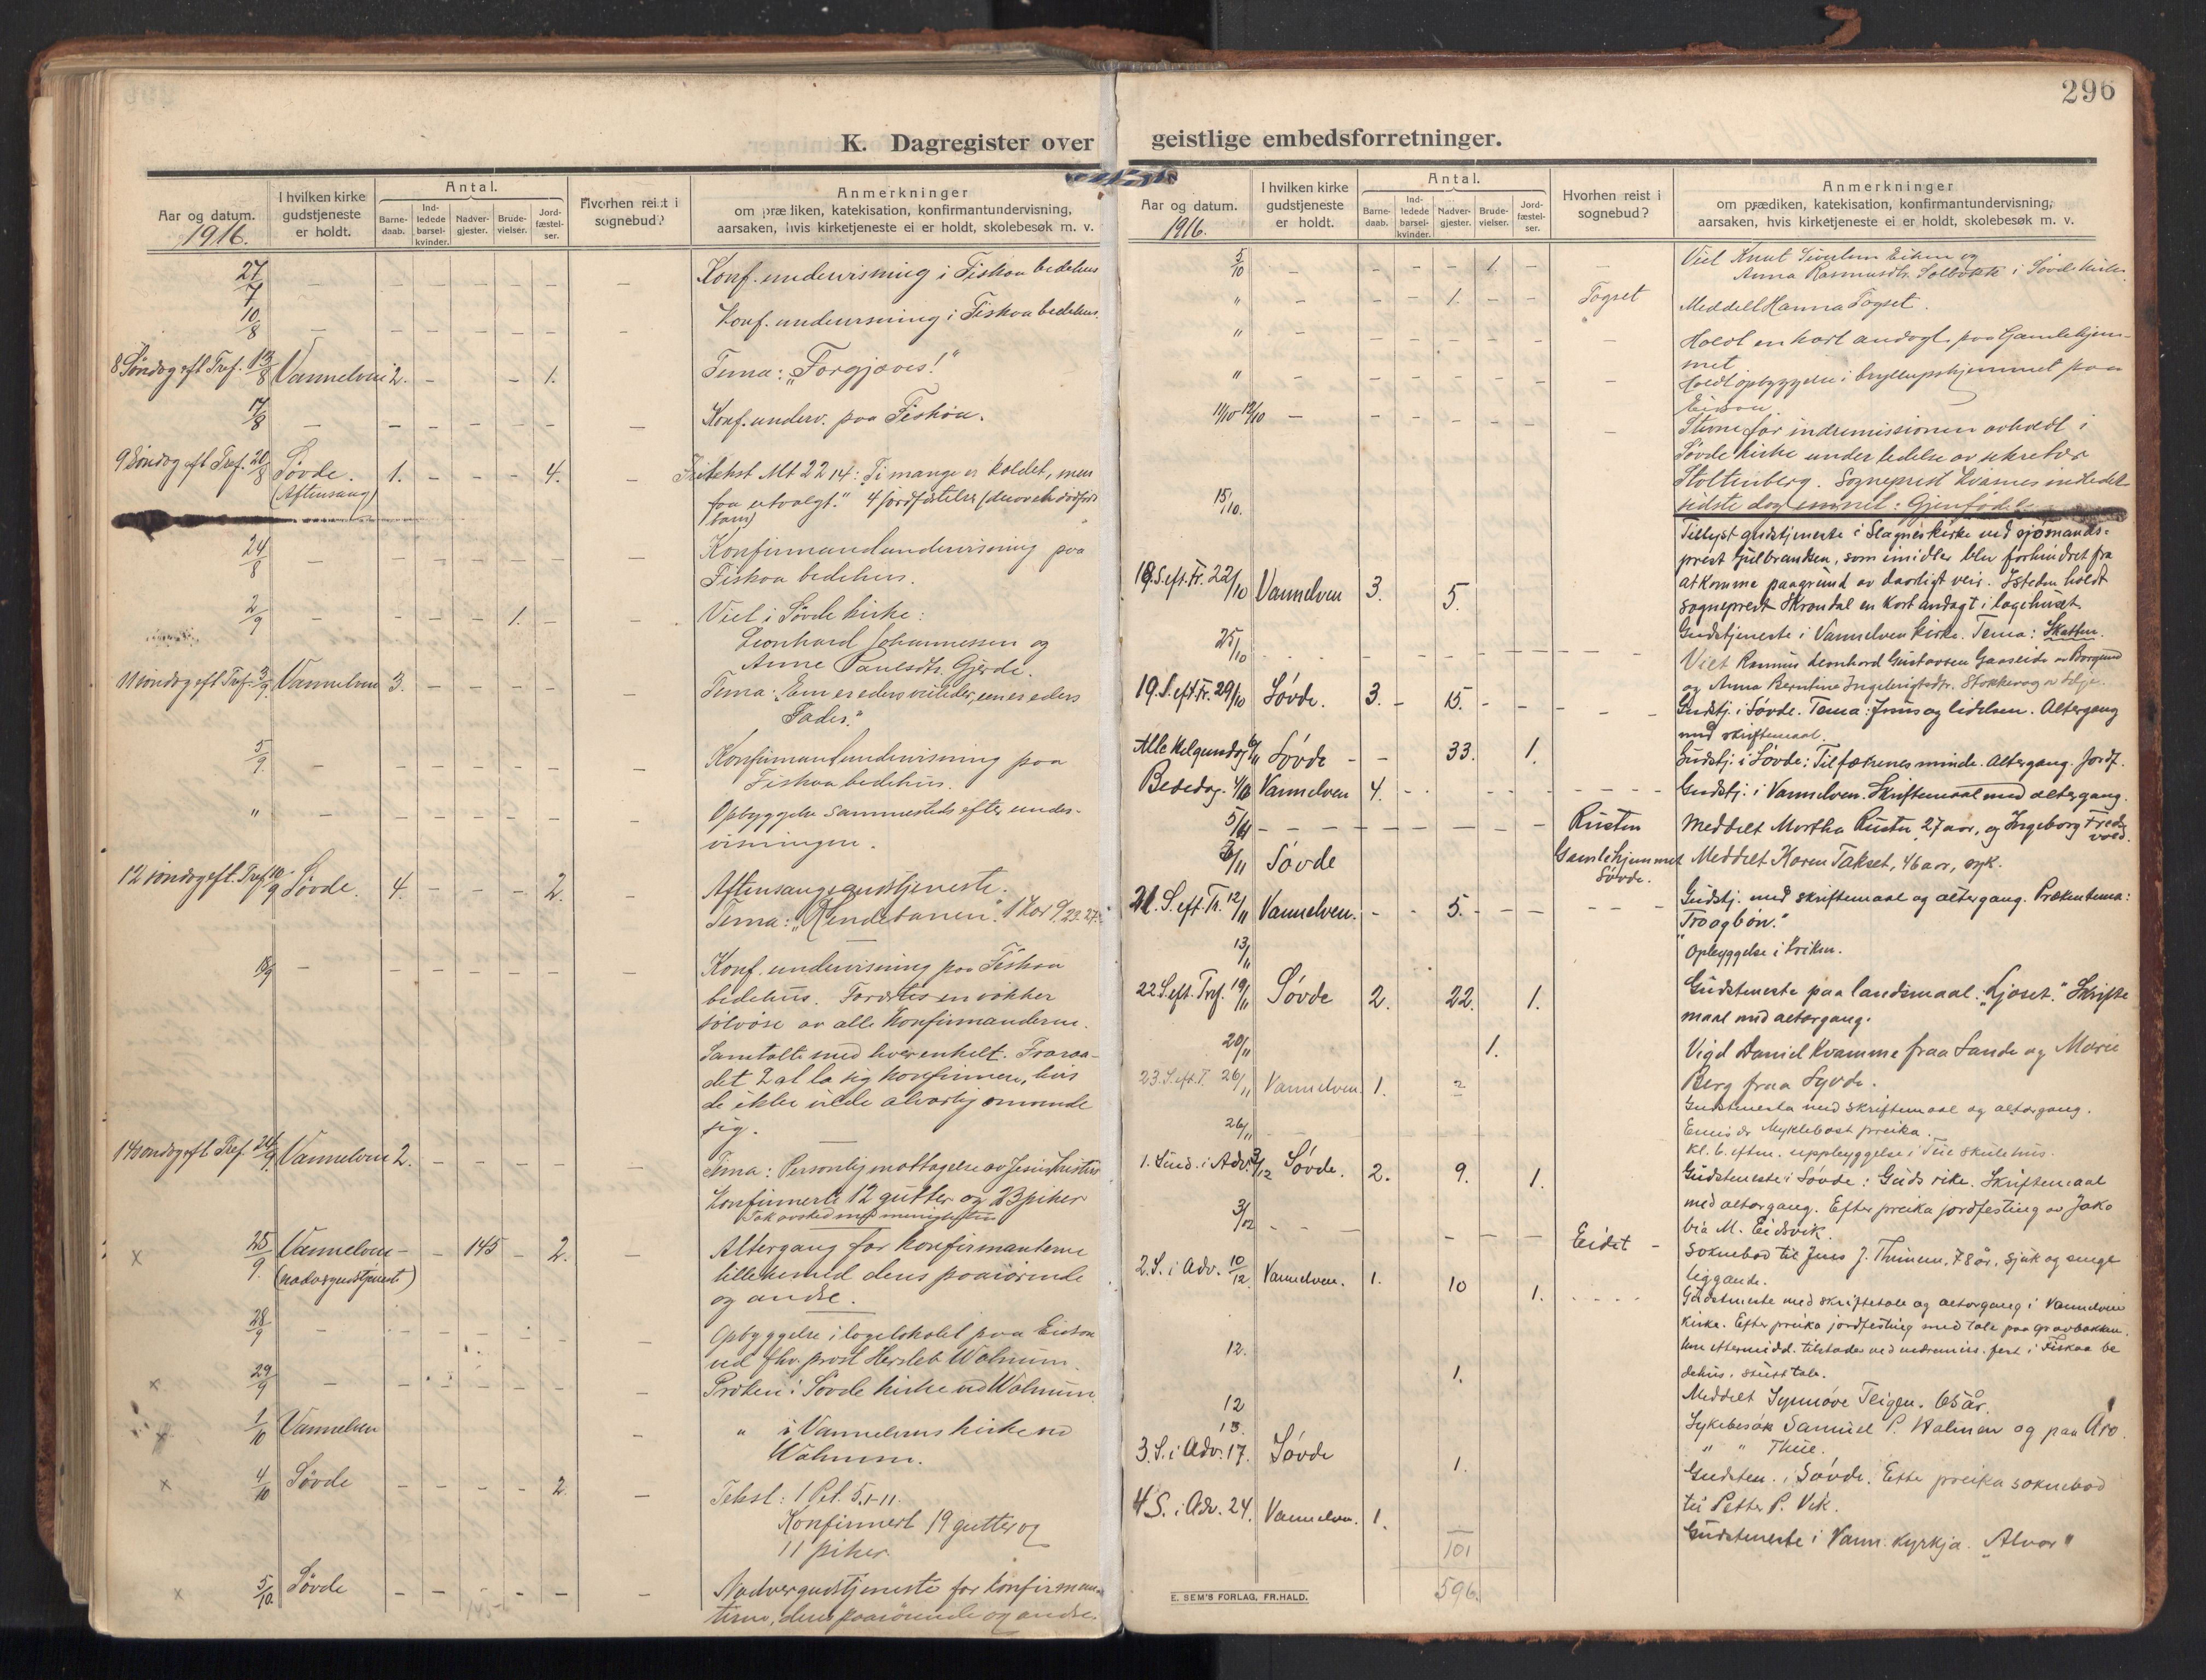 296
K. Dagregister over
geistlige embedsforretninger.
Aar og datum.
1916.
I hvilken kirke
gudstjeneste
er holdt.
Antal.
Barne-
daab.
Ind-
ledede
barsel-
kvinder.
Nadver-
gjester.
Brude-
vielser.
Jord-
fæstel-
ser.
Hvorhen reist i
sognebud?
Anmerkninger
om prædiken, katekisation, konfirmantundervisning,
aarsaken, hvis kirketjeneste ei er holdt, skolebesøk m. v.
27/7 Konf. undervisning i Fiskaa bedehus
10/8 Konf. undervisning i Fiskaa bedehus.
8 Søndag eft Tref. 13/8 Vannelven 2. - - 1. Tema: "Forgjæves!"
17/8 - - - - - - - Konf. underv. paa Fiskaa.
9 Søndag eft Tref. 20/8 Søvde. 1. - - - 4. - Fritekst Mt 22 14: Ti mange er kaldet, men
(Aftensang) faa utvalgt." 4 jordfæstelser
barn)
24/8 - - - - - - - Konfirmandundervisning paa
Fiskaa bedehus.
2/9 - - - - - 1. - - Viet i Søvde kirke:
Leonhard Johannessen og
Anne Paulsdtr. Gjerde.
11 søndag eft Tref. 3/9 Vannelven 3. - - - - Tema: "Een er eders veileder, een er eders
Fader."
5/9. - - - - - - - Konfirmandundervisning paa
Fiskaa bedehus.
" - - - - - - Opbyggelse sammesteds efter under-
visningen.
12 søndag eft. Tref 10/9 Søvde. 4. - - - 2. Aftensangsgudstjeneste.
Tema: "Rendebanen". 1 Kor 9 22-27.
18/9 - - - - - - - Konf. undervisning paa Fiskaa
bedehus. Foræretes en vakker
sølvøse av alle konfirmanderne.
Samtalte med hver enkelt. Fraraa-
det 2 at la sig konfirmere, hvis
de ikke vilde alvorlig omvende
sig.
14 søndag eft Tref. 24/9. Vannelven 2. - - - - Tema: Personlig mottagelse av Jesus Kristus
Konfirmerte 12 gutter og 23 piker
Tok avsked med menigheten
x 25/9. Vannelven - - 145 - 2. - Altergang for konfirmanterne
(nadvergudstjeneste) tillikemed deres paarørende
og andre.
28/9 - - - - - - - Opbyggelse i logelokalet paa Eidsaa
ved fhv. prost Hersleb Walnum.
x 29/9 - - - - - - - Præken i Søvde kirke ved Walnum.
x 1/10 Vannelven - " i Vannelvens kirke ved
Walnum.
x 4/10 Søvde - - - - 2 - Tekst: 1 Pet. 5, 1-11.
Konfirmert 19 gutter og
11 piker.
x 5/10. Søvde - - - - - - Nadvergudstjeneste for konfirman-
145 terne, deres paarørende og andre.
Aar og datum.
1916.
I hvilken kirke
gudstjeneste
er holdt.
Antal.
Barne-
daab.
Ind-
ledede
barsel-
kvinder.
Nadver-
gjester.
Brude-
vielser.
Jord-
fæstel-
ser.
Hvorhen reist i
sognebud?
Anmerkninger
om prædiken, katekisation, konfirmantundervisning,
aarsaken, hvis kirketjeneste ei er holdt, skolebesøk m. v.
5/10 - - - - 1. - - Viet Knut Eiken og
Anna Rasmusdtr. i Søvde kirke.
" - - - 1. - - Fogset Meddelt Hanna Fogset.
" - - - - - - - Holdt en kort andagt paa Gamlehjem-
met
" - - - - - - Holdt opbyggelse i bryllupshjemmet paa
Eidsaa.
11/10-12/10 - - - - - - - Stevne for indremissionen avholdt i
Søvde kirke under ledelse av sekretær
Stoltenberg. Sogneprest Kvarnes indledet
sidste dag emnet:
15/10. Tillyst gudstjeneste i Slagnes kirke ved sjømands-
prest Gulbrandsen, som imidler blev forhindret fra
at komme paagrund av daarligt veir. Isteden holdt
sogneprest Skrondal en kort andagt i logehuset
18. S. eft. Fr. 22/10 Vannelven 3. 5. Gudstjeneste i Vannelven kirke. Tema: Skatten.
25/10 - - - - Viet Rasmus Leonhard Gustavsen Gaaseide av Borgund
og Anna Berntine Ingebrigtsdtr. Stokkevag av Selje.
19. S. eft. Fr. 29/10 Søvde. 3. - 15. - - - - Gudstj. i Søvde. Tema: Jesus og lidelsen. Altergang
med skriftemaal.
Alle Helgensdag Søvde - - 33. 1. Gudstj. i Søvde: Tilfælrenes minde. Altergang. Jordf.
Bededag. Vannelven 4. - - - - Gudstj. i Vannelven. Skriftemaal med altergang.
5/11 - - - - - - - Rusten Meddelt Martha Rusten, 27 aar, og Ingeborg Freds-
vold.
/11 Søvde Gamlehjemmet Meddelt Karen Takset, 46 aar, syk.
Søvde.
21. S. eft. Tr. 12/11 Vannelven. - - 5. - - - - Gudstj. med skriftemaal og altergang. Prækentema:
"Tro og bøn."
13/11 Opbyggelse i kirken.
22 S. eft. Tref. 19/11 Søvde 2. 22. 1. Gudsteneste paa landsmaal. "Ljoset." Skrifte
maal med altergang.
20/11 1. Vigd Daniel Kvamme fraa Sande og Marie
Berg fraa Syvde.
23. S. eft. T. 26/11 Vannelven 1. 2 Gudstenesta med skriftemaal og altergang.
Emisær Myklebost preika.
26/11 - - kl. 6 eftm. uppbyggelse i Tue skulehus.
1. Sund. i Adv. 3/12 Søvde. 2. 9. 1. Gudsteneste i Søvde: Guds rike. Skriftemaal
med altargang. Efter preika jordfesting av Jako
bia M. Eidsvik.
3/12 - - - - - - Eidet - Soknebod til Jens J. Thunem, 78 år, sjuk og senge
liggande.
2. S. i Adv. 10/12 Vannelven. 1. 10 1. - - - - Gudsteneste med skriftetale og altargang i Vannelven
kirke. Efter preika jordfesting med tale paa gravbakken.
Um eftermidd. tilstades ved indremis. fest i Fiskaa be
dehus. stutt tale.
12. 1. Meddelt Synnøve Teigen. 65 år.
12 Sykebesøk Samuel P. Walnum og paa Åro.
13. " " Thue.
3. S. i Adv. 17. Søvde 1. Gudsten. i Søvde. Ette preika soknebod
til Petter P. Vik.
4 S. i Adv. 24. Vannelven. 1. Gudsteneste i Vann. kyrkja. "Alvor"
101
596.
E. SEM'S FORLAG, FR.HALD.